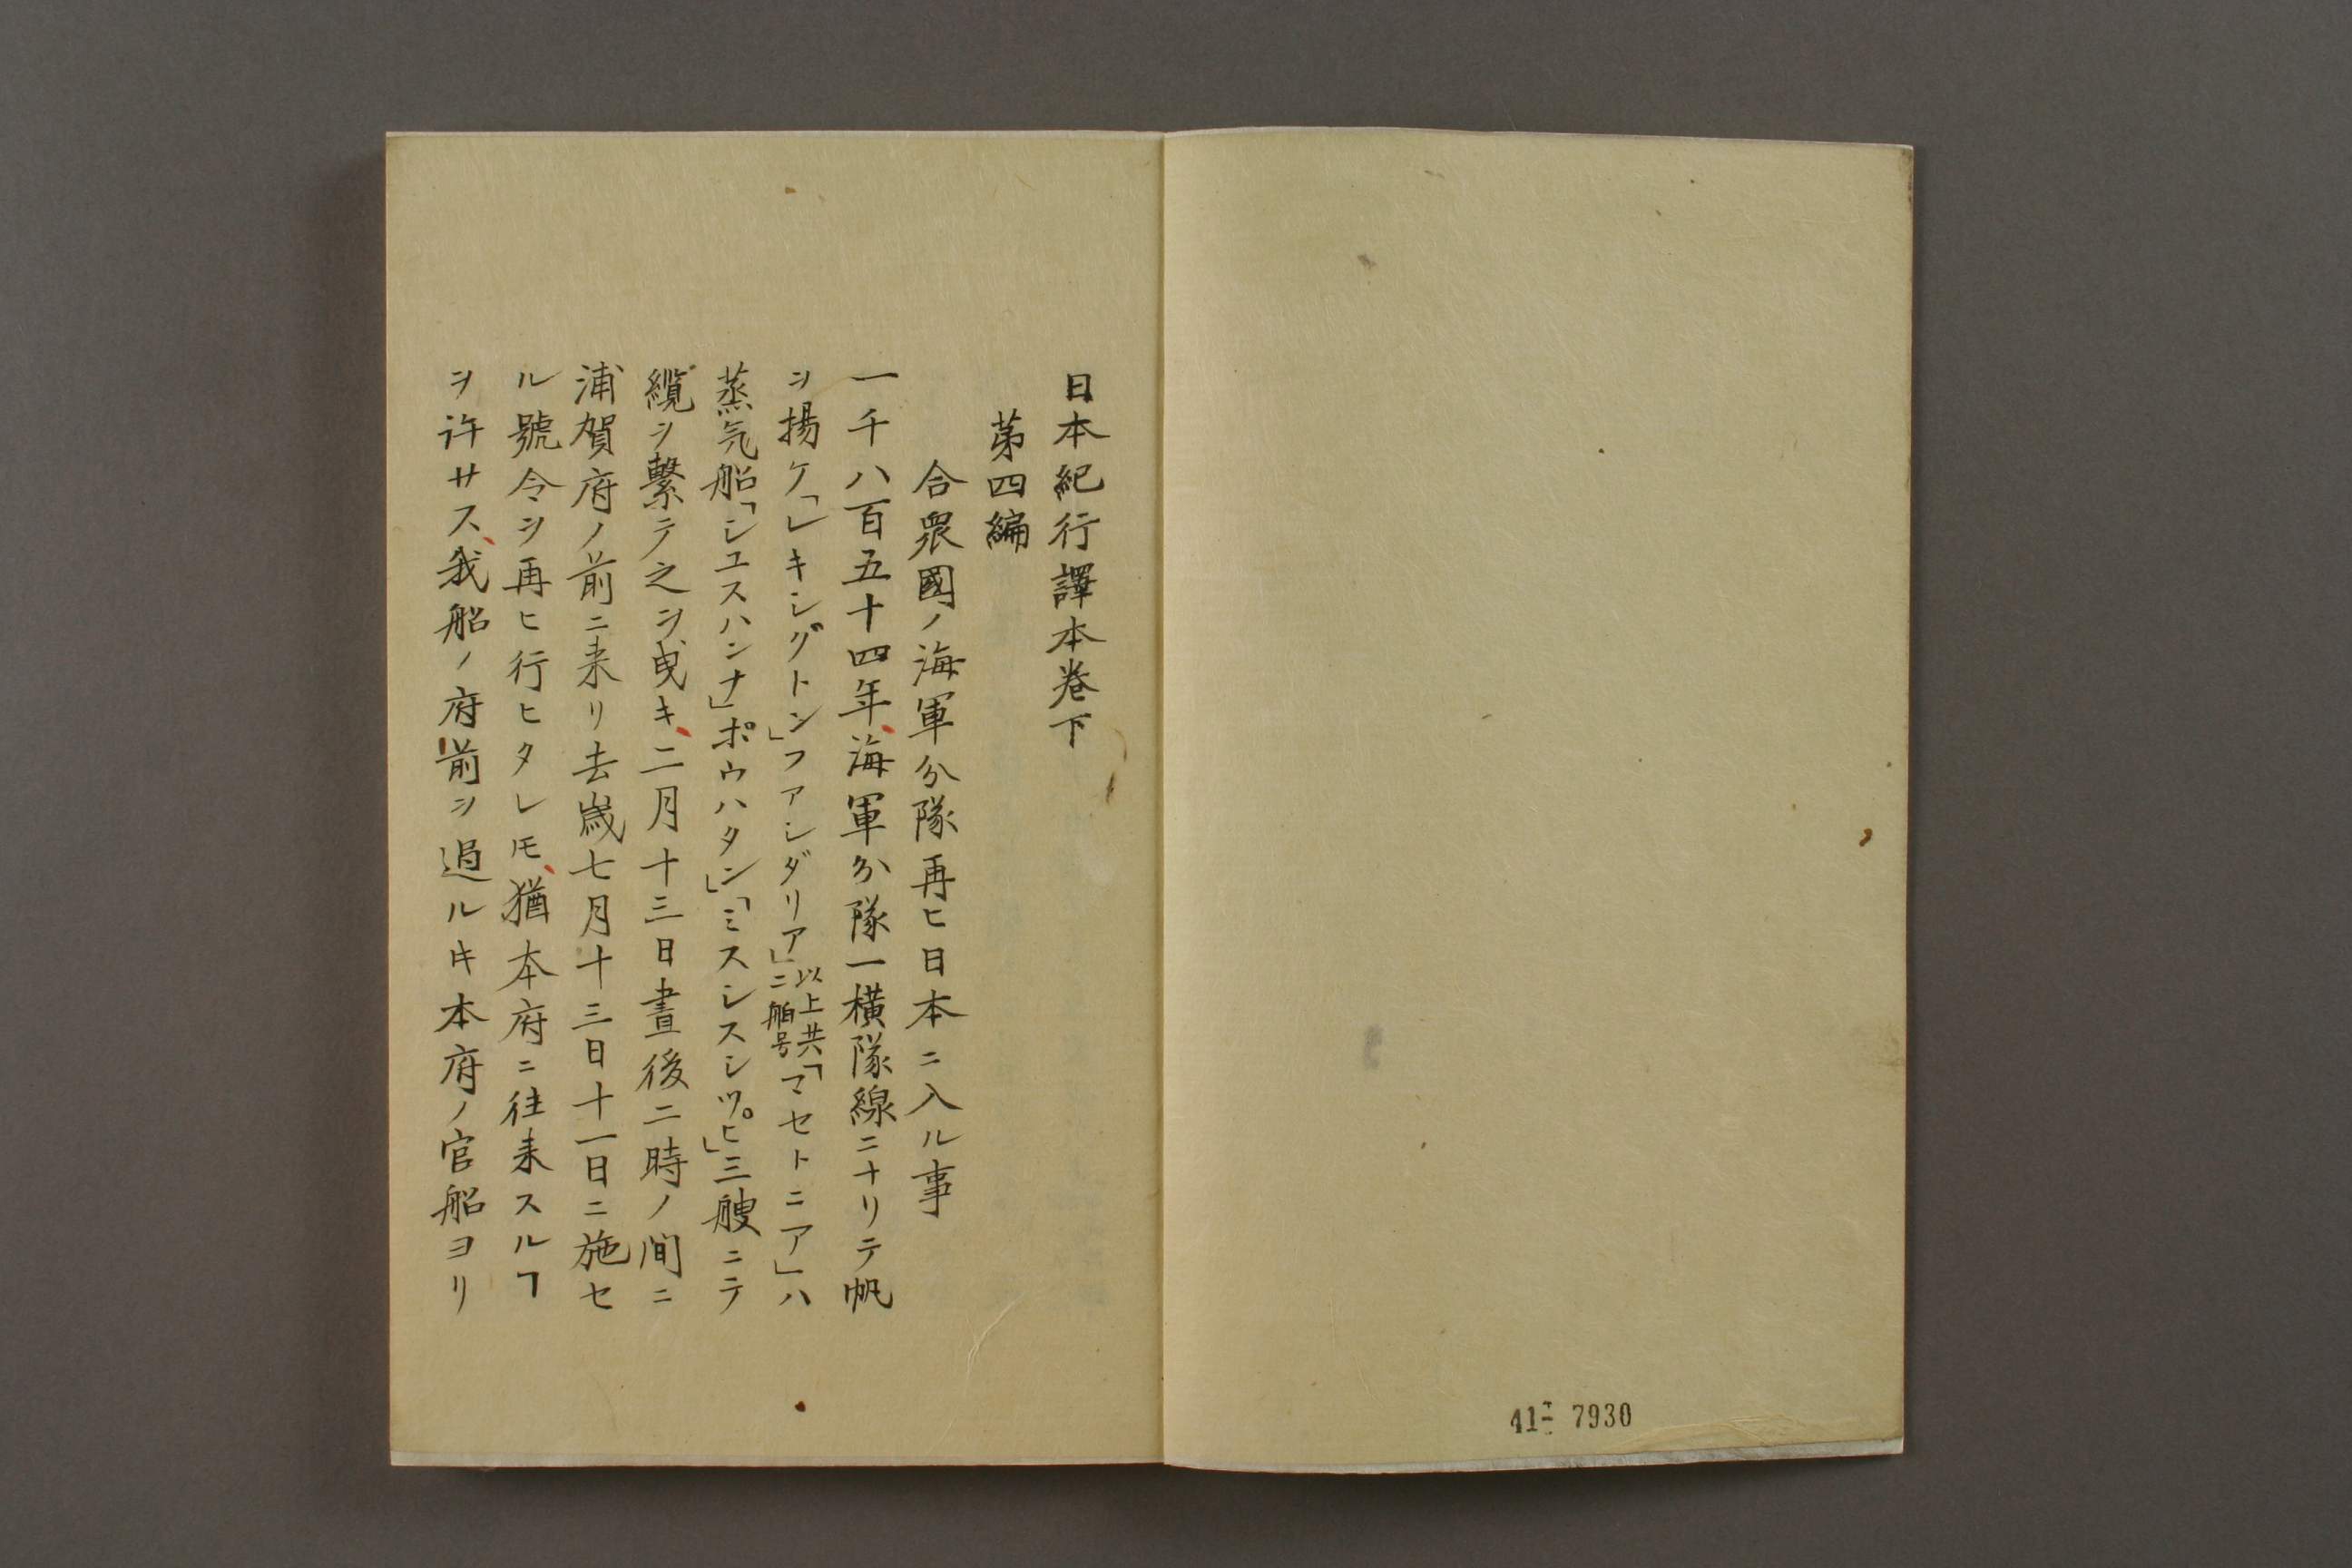 日本紀行譯本卷下
第四編
合衆國ノ海軍分隊再ヒ日本ニ入ル事
一千八百五十四年、海軍分隊一横隊線ニナリテ帆
ヲ揚ケ「レキシグトン」フアンダリア」以上共ニ舶号「マセトニア」ハ
蒸気船「シユスハンナ」ポウハタン」「ミスシスシツピ」三艘ニテ
纜ヲ繋テ之ヲ曳キ、二月十三日晝後二時ノ間ニ
浦賀府ノ前ニ来リ去歳七月十三日十一日ニ施セ
ル號令ヲ再ヒ行ヒタレ𪜈、猶本府ニ往来スルヿ
ヲ許サス、我船ノ府前ヲ過ルキ本府ノ官船ヨリ
41 7930